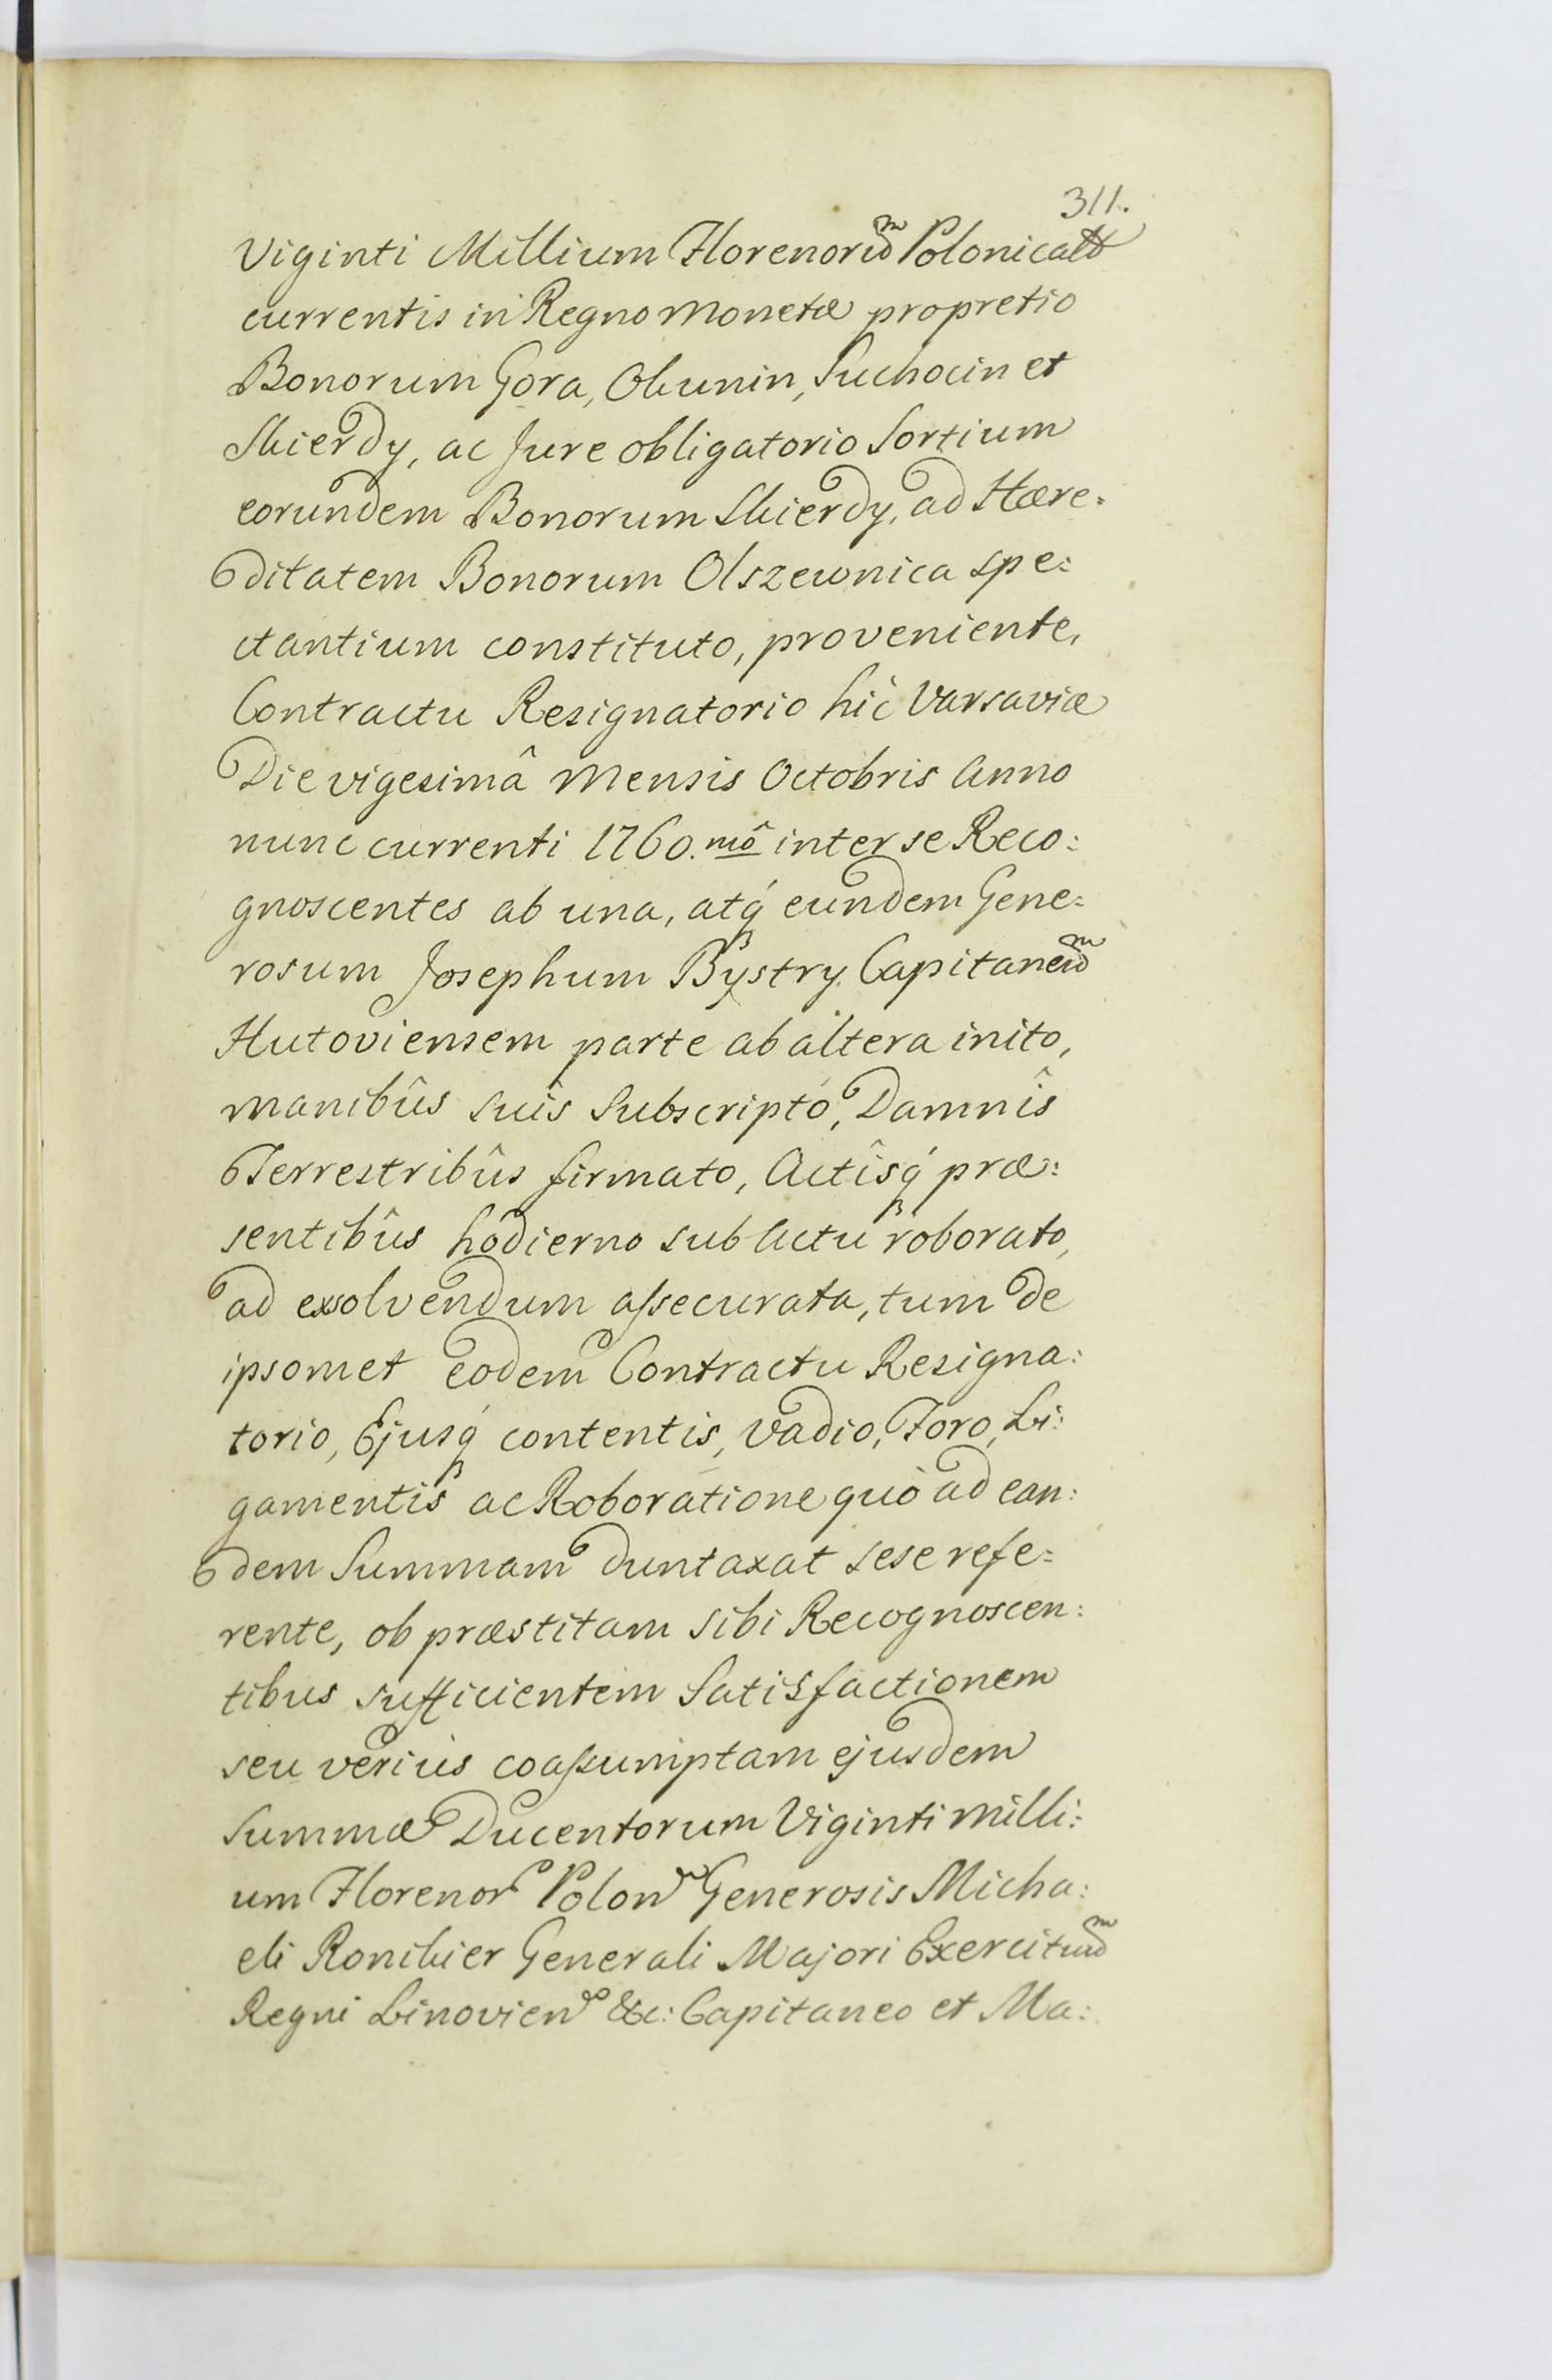 311.
Viginti Millium Florenorum Polonical
currentis in Regno Monetæ pro pretio
Bonorum Gora, Okunin, Suchocin et
Skierdy, ac Jure obligatorio Sortium
eorundem Bonorum Skierdy, ad Hære=
ditatem Bonorum Olszewnica spe:
ctantium constituto, proveniente,
Contractu Resignatorio hic Varsaviæ
Die vigesimâ Mensis Octobris Anno
nunc currenti 1760.mô inter se Reco:
gnoscentes ab una, atq́ eundem Gene=
rosum Josephum Bystry Capitaneum
Hutoviensem parte ab altera inito,
manibûs suis Subscripto, Damnîs
Terrestribûs firmato, Actîsq́ præ:
sentibûs hodierno sub Actu roborato,
ad exsolvendum assecurata, tum de
ipsomet eodem Contractu Resigna:
torio, Ejusq́ contentis, Vadio, Foro, Li:
gamentis ac Roboratione quò ad ean:
dem Summam duntaxat sese refe=
rente, ob præstitam sibi Recognoscen:
tibus sufficientem Satisfactionem
seu verius coassumptam ejusdem
Summæ Ducentorum Viginti Milli:
um Florenor Polon Generosis Micha:
eli Ronikier Generali Majori Exercituum
Regni Linovien &c: Capitaneo et Ma: